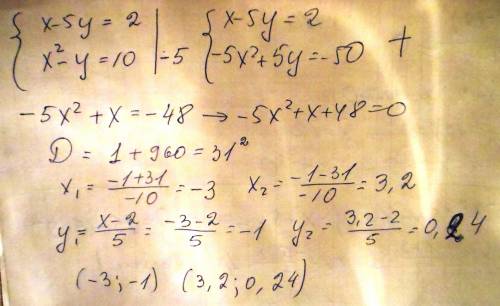 { x-5y=2 { x-5y=2
x²-y=10 |·-5 -5x²+5y=-50 +
-5x²+x=-48 → -5x²+x+48=0
D = 1+960=31²
x₁ = (-1+31)/-10 = -3 x₂ = (-1-31)/-10 = 3,2
y₁ = (x-2)/5 = (-3-2)/5 = -1 y₂ = (3,2-2)/5 = 0,24
(-3;-1) (3,2;0,24)